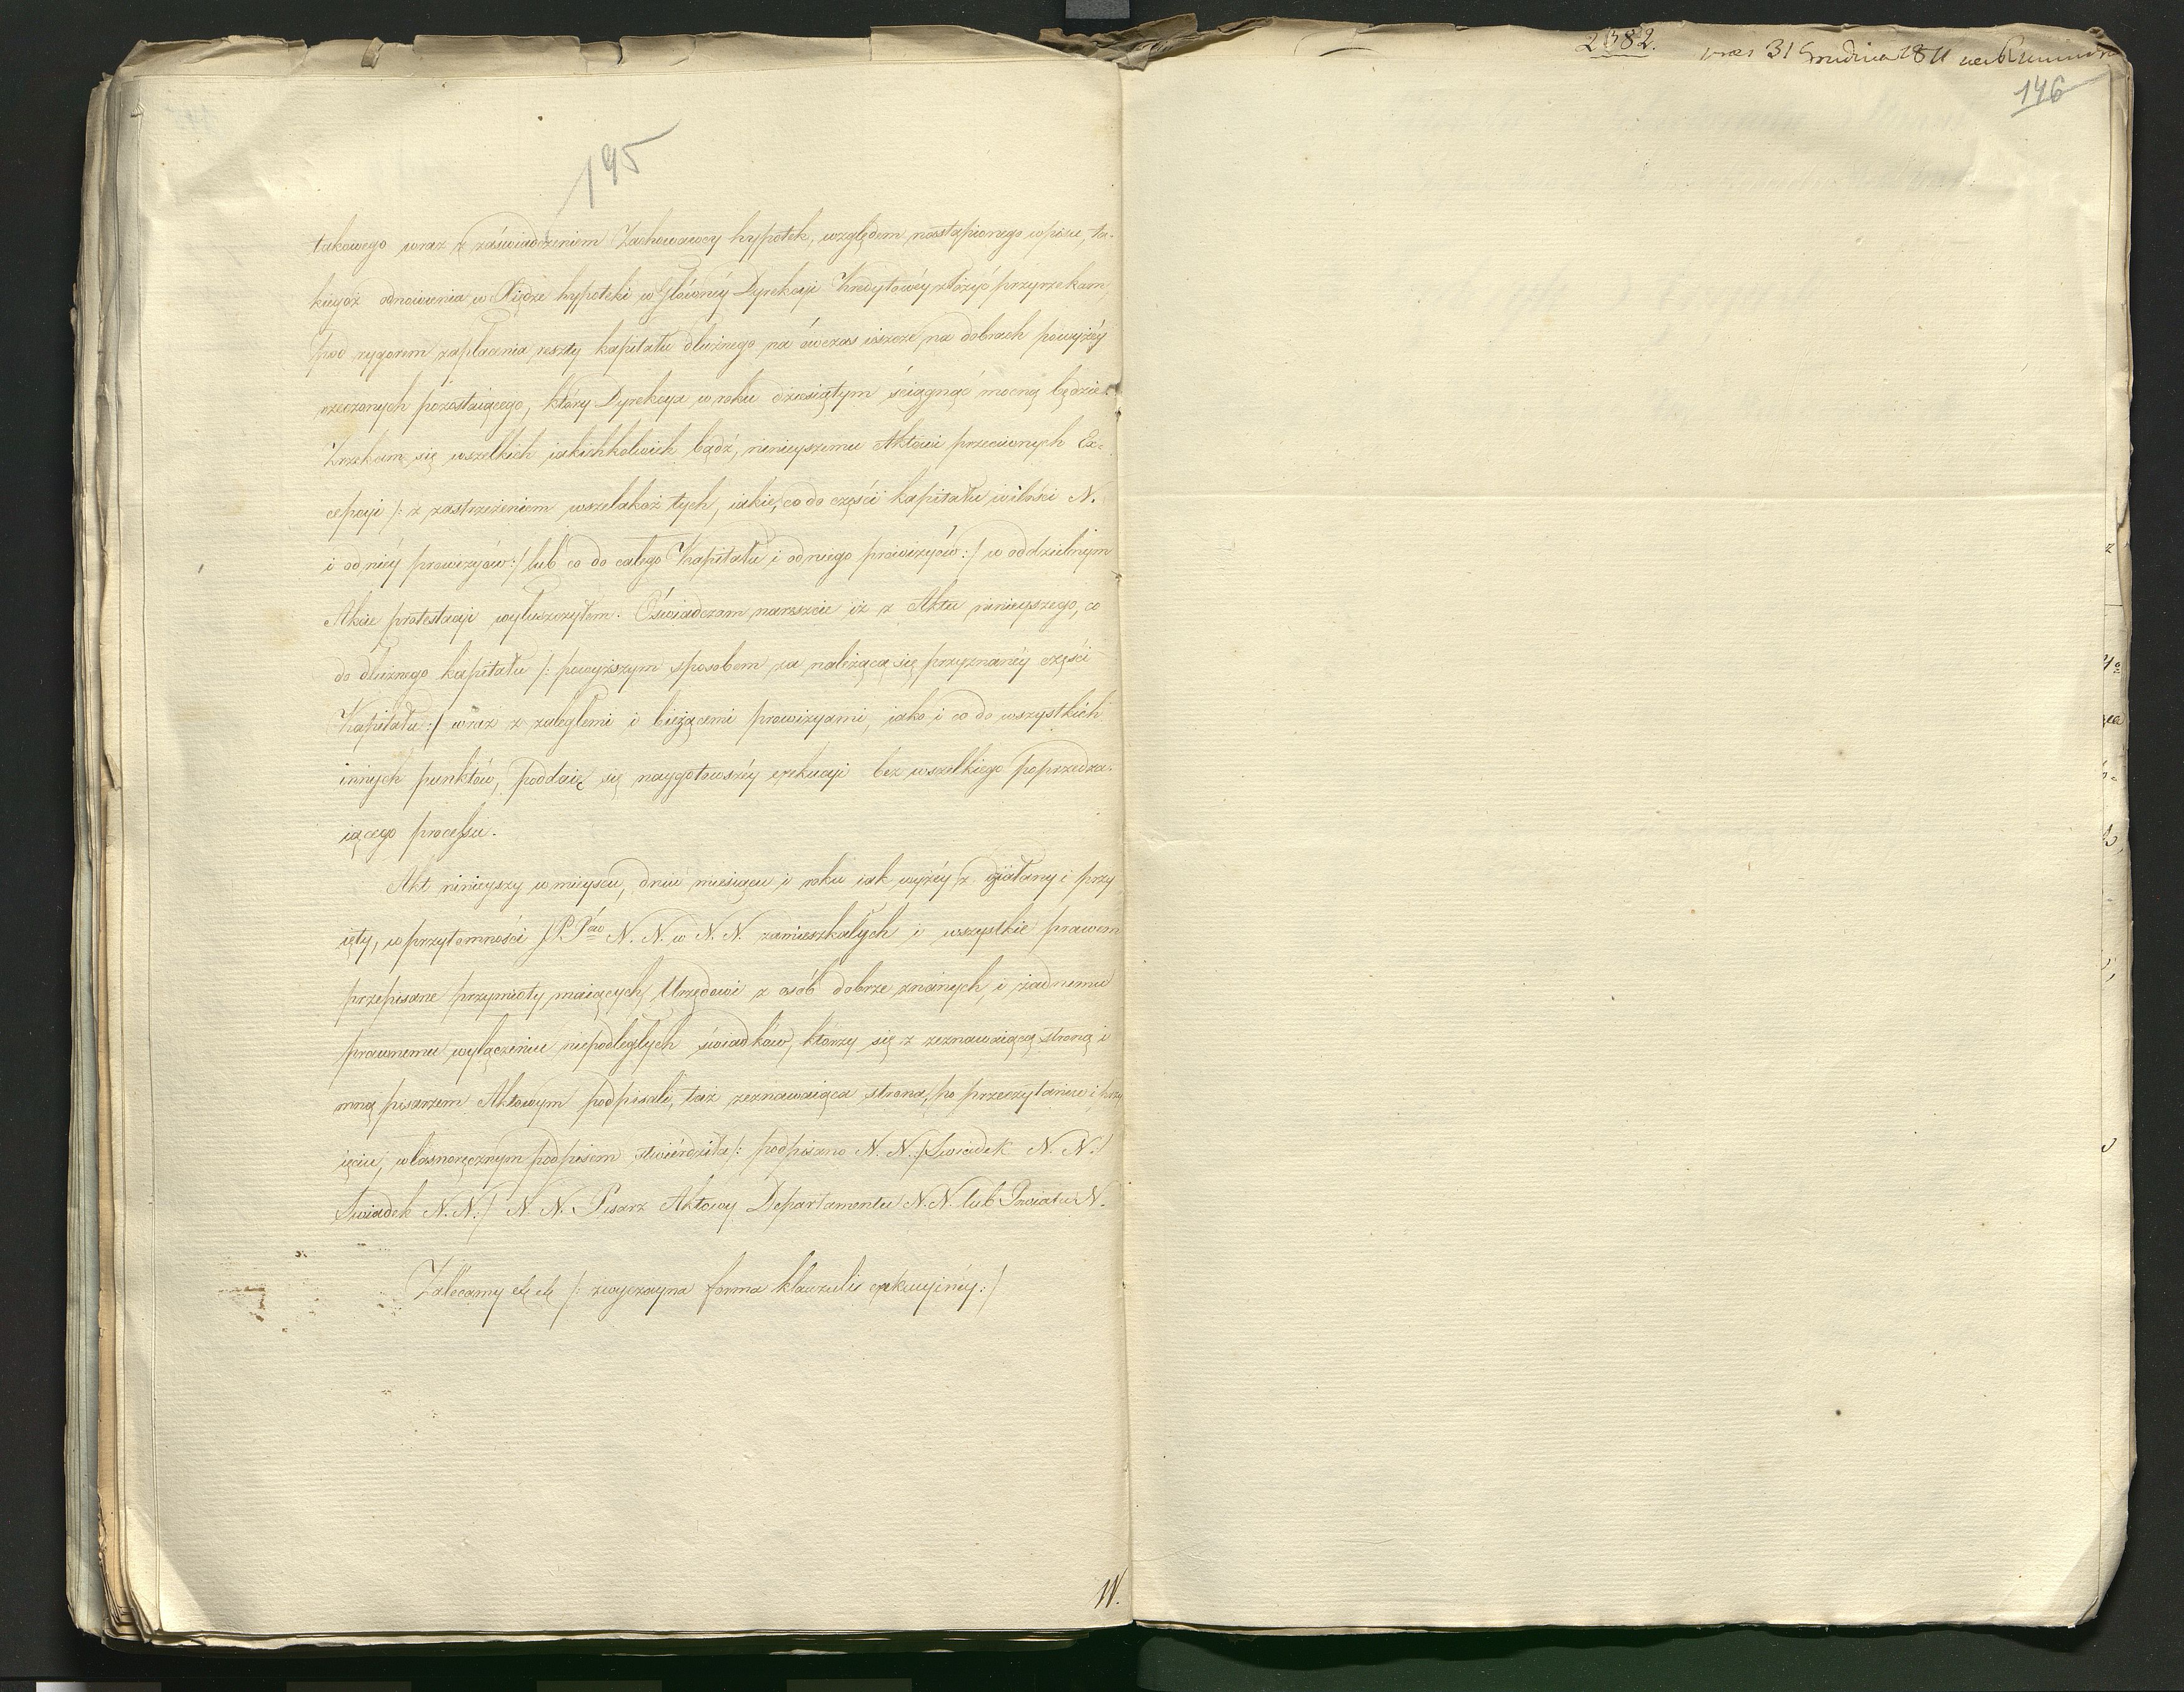 195
takowego wraz z zaświadczeniem Zachowawcy hypotek, względem nastąpionego wpisu, ta-
kiegoż odnowienia w Xiędze hypoteki w Głównéy Dyrekcyi Kredytowéy złożyć przyrzekam,
pod rygorem zapłacenia reszty kapitału dłużnego na ówczas ieszcze na dobrach powyżéy
rzeczonych pozostaiącego, który Dyrekcya w roku dziesiątym ściągnąć mocną będzie.
Zrzekam się wszelkich iakichkolwiek bądź, ninieyszemu Aktowi przeciwnych Ex-
cepcyi /: z zastrzeżeniem wszelakoż tych, iakie, co do części kapitału w ilości N.
i od niéy prowizyów :/ lub co do całego Kapitału i od niego prowizyów :/ w oddzielnym
Akcie protestacyi wyłuszczyłem. Oświadczam nareszcie iż z Aktu ninieyszego, co
do dłużnego kapitału /: powyższym sposobem za należącą się przyznanéy części
Kapitału :/ wraz z zaległemi i bieżącemi prowizyami, iako i co do wszystkich
innych punktów, poddaię się naygotowszéy exekucyi bez wszelkiego poprzedza-
iącego processu.
Akt ninieyszy w mieyscu, dniu miesiącu i roku iak wyżéy z działany i przy
ięty, w przytomności JP. Pów N. N. w N. N. zamieszkałych i wszystkie prawem
przepisane przymioty maiących, Urzędowi z osób dobrze znanych, i żadnemu
prawnemu wyłączeniu niepodległych świadków, którzy się z zeznawaiącą stroną i
mną pisarzem Aktowym podpisali, taż zeznawaiąca strona, po przeczytaniu i przy
ięciu, własnoręcznym podpisem stwierdziła /: podpisano N. N. /Swiadek N. N./
Swiadek N. N. :/ N. N. Pisarz Aktowy Departamentu N. N. lub Powiatu N.
Zalecamy etc etc /: zwyczayna forma klauzulis exekucyinéy :/
W.
2382.
31 Grudnia 1811
146